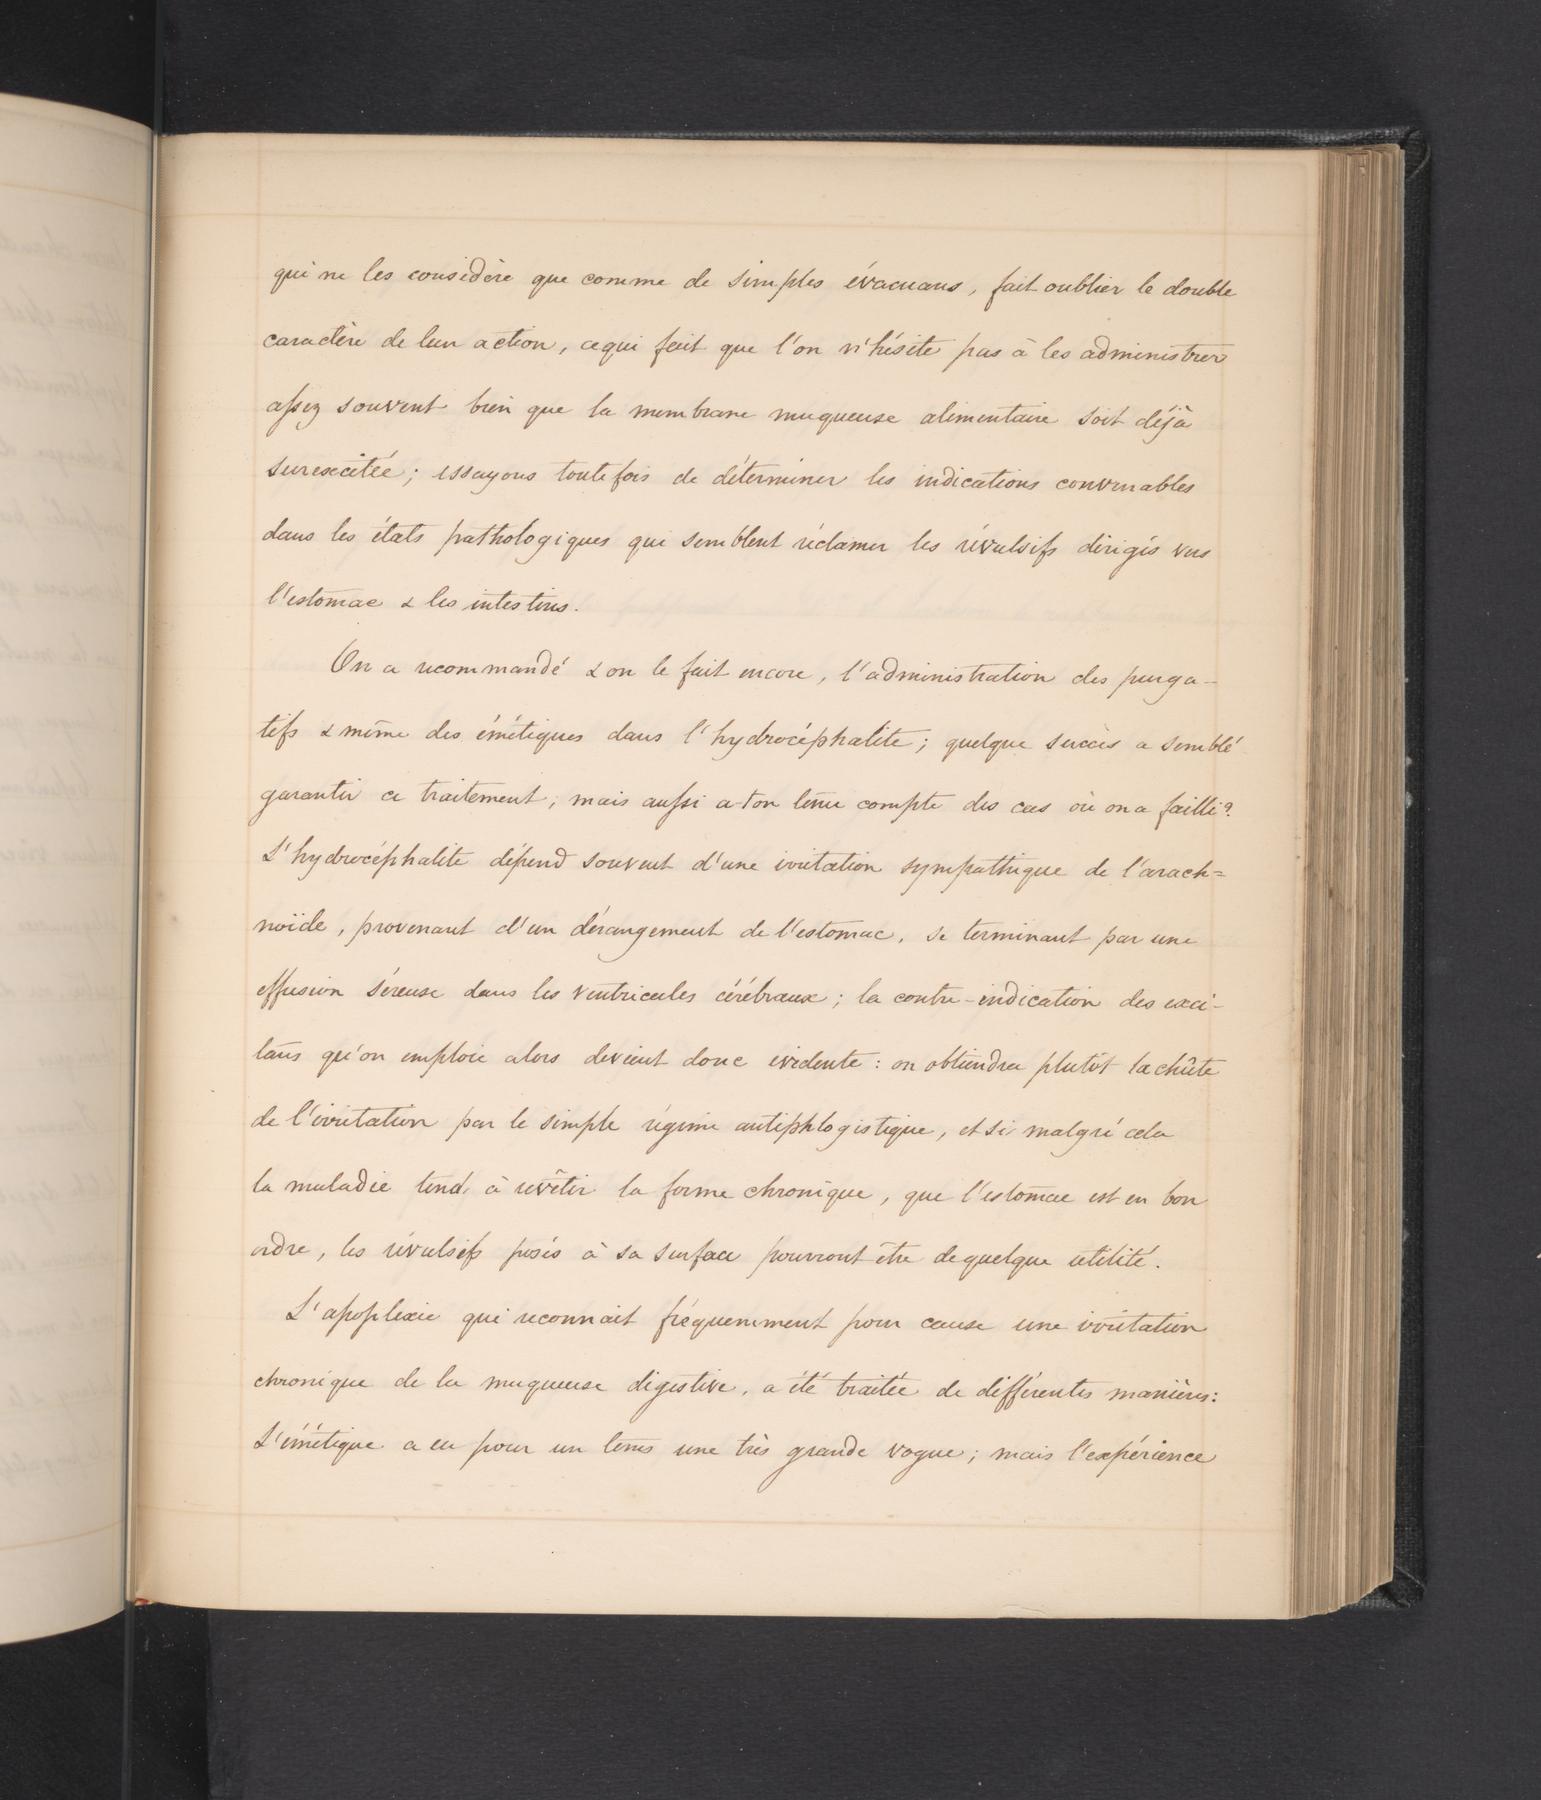 qui ne les considère que comme de simples évacuans, fait oublier le double
caractère de leur action, ce qui fait que l'on n'hésite pas à les administrer
assez souvent bien que la membrane muqueuse alimentaire soit déjà
surexcitée; essayons toutefois de déterminer les indications convenables
dans les états pathologiques qui semblent réclamer les révulsifs dirigés vers
l'estomac & les intestins.
On a recommandé & on le fait encore, l'administration des purga-
tifs & même des émétiques dans l'hydrocéphalite; quelque succès a semblé
garantir ce traitement; mais aussi a-t-on tenu compte des cas où on a failli?
L'hydrocéphalite dépend souvent d'une irritation sympathique de l'arach=
noïde, provenant d'un dérangement de l'estomac, se terminant par une
effusion séreuse dans les ventricules cérébraux; la contre-indication des exci-
tans qu'on emploie alors devient donc évidente: on obtiendra plutôt la chûte
de l'irritation par le simple régime antiphlogistique, et si malgré cela
la maladie tend à revêtir la forme chronique, que l'estomac est en bon
ordre, les révulsifs posés à sa surface pourront être de quelque utilité.
L'apoplexie qui reconnait fréquemment pour cause une irritation
chronique de la muqueuse digestive, a été traitée de différentes manières:
L'émétique a eu pour un tems une très grande vogue; mais l'expérience